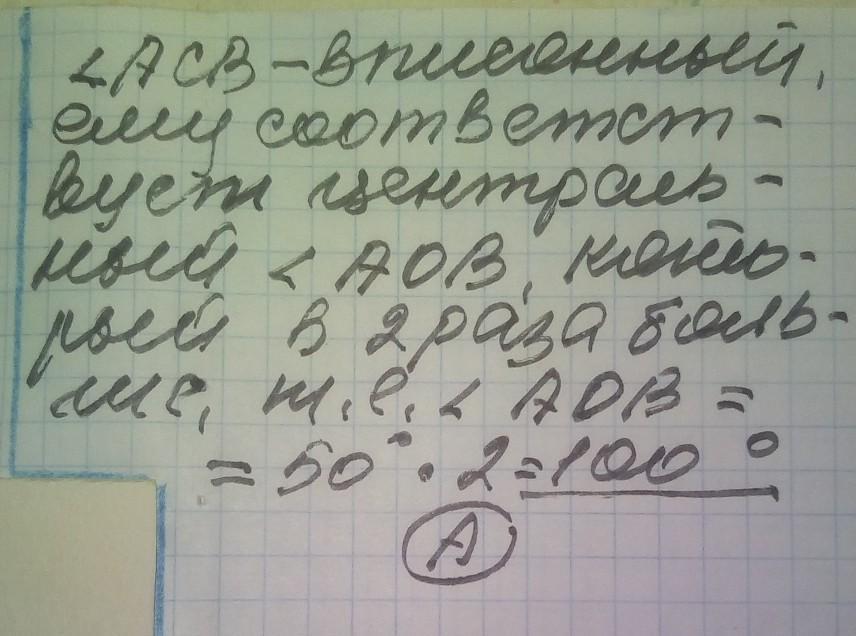 <ACB – вписанный,
ему соответст-
вует централь-
ный < AOB, кото-
рый в 2 раза боль-
ше, т.е. < AOB =
= 50° · 2 = 100°
А